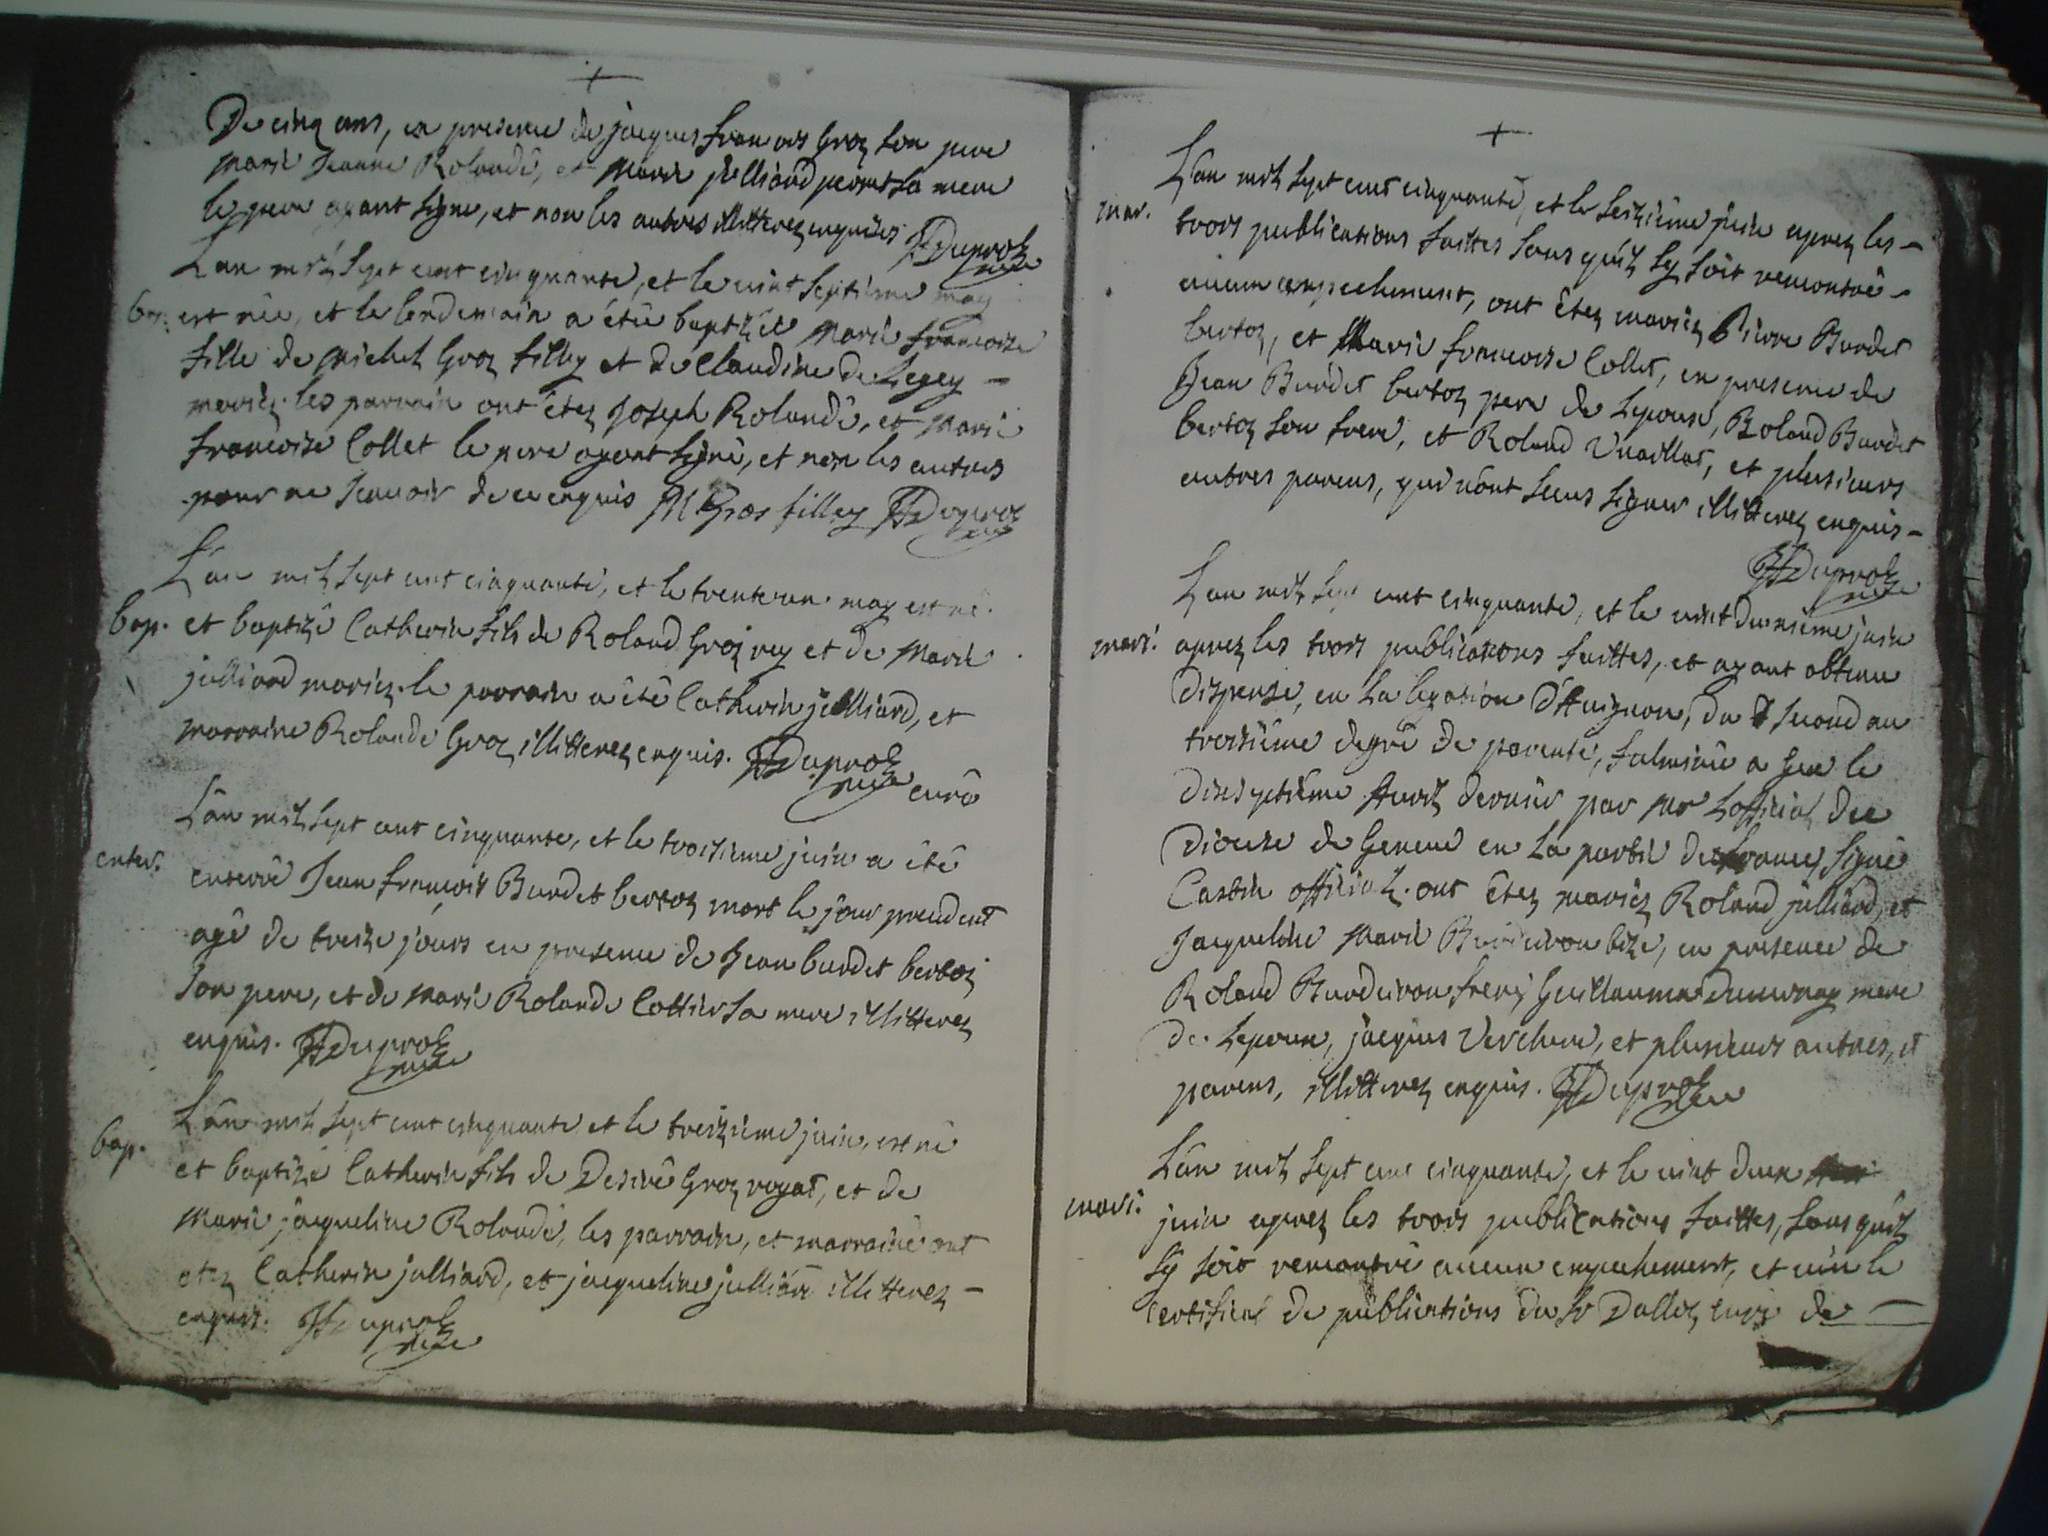 De cinq ans, en presence de jacques francois groz son pere
Marie Jeanne Rolande, et Marie julliand sa mere
le pere ayant signe, et non les autres illitterez enquis
JDuproz
L'an mil sept cent cinquante, et le vint septieme may
bap. est née, et le lendemain a étée baptizée Marie francoise
fille de Michel Groz filley et de Claudine de Legey -
mariéz. les parrain ont étez Joseph Rolandé, et Marie
francoise Collet le pere ayant signé, et non les autres
pour ne scauoir de ce enquis M Gros filley JDuproz
L'an mil sept cent cinquante, et le trente un may est né
bap. et baptizé Catherin fils de Roland Groz rey et de Marie
julliard mariez. le parrain a été Catherin julliard, et
marraine Rolande Groz illitterez enquis. JDuproz
curé
L'an mil sept cent cinquante, et le troisieme juin a été
enter. enterré Jean francois Burdet bertoz mort le jour precedent
agé de treize jours en presence de Jean burdet bertoz
son pere, et de Marie Rolande Cottier sa mere illitterez
enquis. JDuproz
L'an mil sept cent cinquante et le treizieme juin, est né
bap. et baptizé Catherin fils de Desiré Groz royat, et de
Marie jacqueline Rolandé, les parrain, et marraine ont
etez Catherin julliard, et jacqueline julliard illitterez -
enquis. JDuproz
L'an mil sept cent cinquante, et le seizieme juin apréz les -
mar. trois publications faittes sans qu'il sy soit rencontré -
aucun empechement, ont étez mariéz Pierre Burdet
bertoz, et Marie francoise Collet, en presence de
Jean Burdet bertoz pere de Lepouse, Roland Burdet
bertoz son frere, et Roland Vuaillat, et plusieurs
autres parens, qui n'ont sceus signer illitterez enquis -
JDuproz
L'an mil sept cent cinquante, et le vint deuxieme juin
mari. aprez les trois publications faittes, et ayant obtenu
dispense, en La legation d'Auignon, du second au
troisiéme degré de parenté, fulminé a Gex le
dixseptiéme Auril dernier par Mr Lofficial du
Diocese de Geneue en La partie de france, signé
Castin official. ont étez mariéz Roland julliard, et
Jacqueline Marie Burdeiron bize, en presence de
Roland Burdeiron frere, Guillauma mere
de Lepouse, jacques Verchere, et plusieurs autres, et
parens, illitterez enquis. JDuproz
L'an mil sept cent cinquante, et le vint deux
mari. juin aprez les trois publications faittes, sans quil
sy soit rencontré aucun empechement, et vu le
certificat de publications du Sr Dalloz curé de -